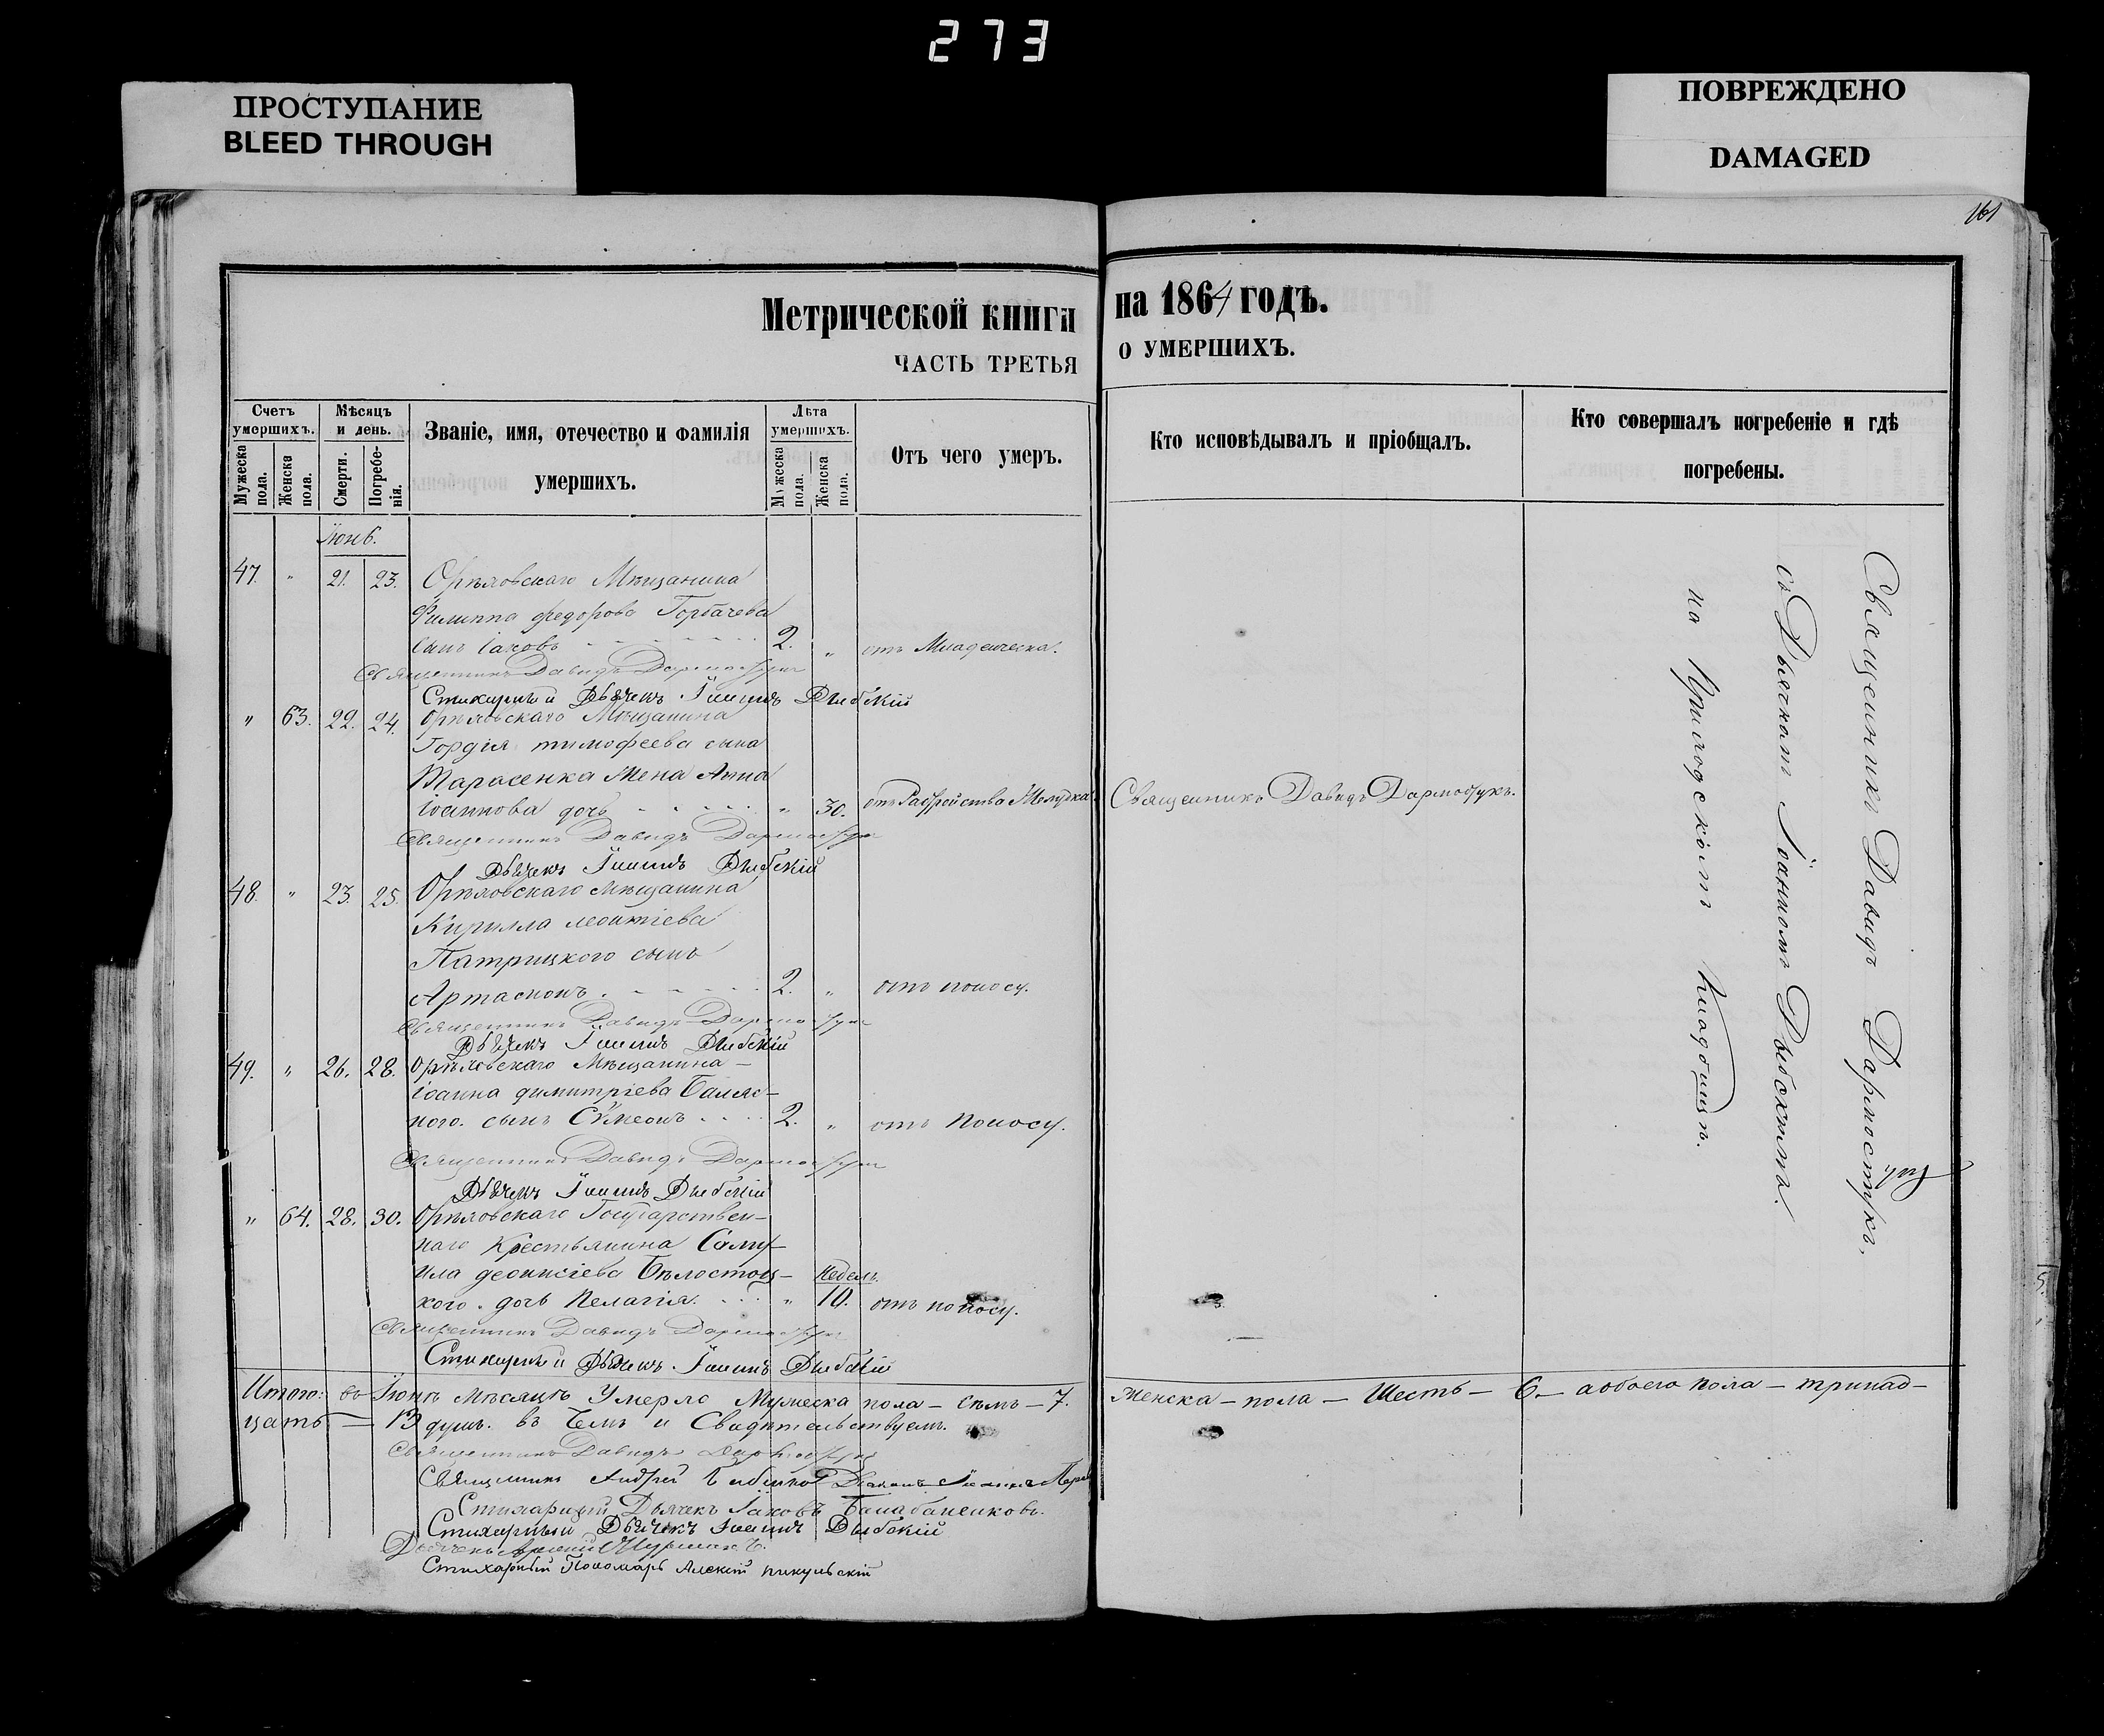 273
ПРОСТУПАНИЕ
BLEED THROUGH
ПОВРЕЖДЕНО
DAMAGED
161
Метрической книги на 1864 годъ.
ЧАСТЬ ТРЕТЬЯ О УМЕРШИХЪ.
Счетъ умершихъ.
Мужеска пола.
Женска пола.
Мѣсяцъ и день.
Смерти.
Погребенія.
Званіе, имя, отечество и фамилія умершихъ.
Лѣта умершихъ.
Мужеска пола.
Женска пола.
Отъ чего умеръ.
Кто исповѣдывалъ и пріобщалъ.
Кто совершалъ погребеніе и гдѣ погребены.
Іюнь.
47. " 21. 23. Орѣловскаго Мѣщанина
Филиппа федорова Горбачева
сынъ Іаковъ 2. " отъ Младенческа.
Священникъ Давидъ
Стихарный Дьячекъ Іоаннъ Дыбскій
" 63. 22. 24. Орѣловскаго Мѣщанина
Гордія тимофеева сына
Тарасенка Жена Анна
Іоаннова дочь " 30. отъ Разстройства Желудка. Священникъ Давидъ
Священникъ Давидъ
Дьячекъ Іоаннъ Дыбскій
48. " 23. 25. Орѣловскаго Мѣщанина
Кирилла леонтіева
Патрицкого сынъ
Артамонъ. 2. " отъ поносу.
Священникъ Давидъ
Дьячекъ Іоаннъ Дыбскій
49. " 26. 28. Орѣловскаго Мѣщанина
Іоанна димитріева Баляс-
ного. сынъ Сѵмеонъ 2. " отъ Поносу.
Священникъ Давидъ
Дьячекъ Іоаннъ Дыбскій
" 64. 28. 30. Орѣловскаго Государствен-
наго Крестьянина Саму-
ила деонисіева Бѣлостоц- недель.
кого. дочь Пелагія. " 10. отъ поносу.
Священникъ Давидъ
Стихарный Дьячекъ Іоаннъ Дыбскій
Священникъ Давидъ
съ Дьячкомъ Іоанномъ Дыбскимъ.
на Приходскомъ Кладбищѣ.
Итого: въ Іюнѣ мѣсяцѣ Умерло Мужеска пола – семъ – 7. Женска – пола – Шесть – 6. – аобоего пола – тринад-
цать – 13 душъ. въ Чемъ и Свидѣтельствуемъ.
Священникъ Давидъ
Священникъ Андрей Діаконъ
Стихарный Дьячекъ Іаковъ Балабаненковъ.
Стихарный Дьячекъ Іоаннъ Дыбскій
Дьячекъ
Стихарный Пономарь Алексій пикульскій